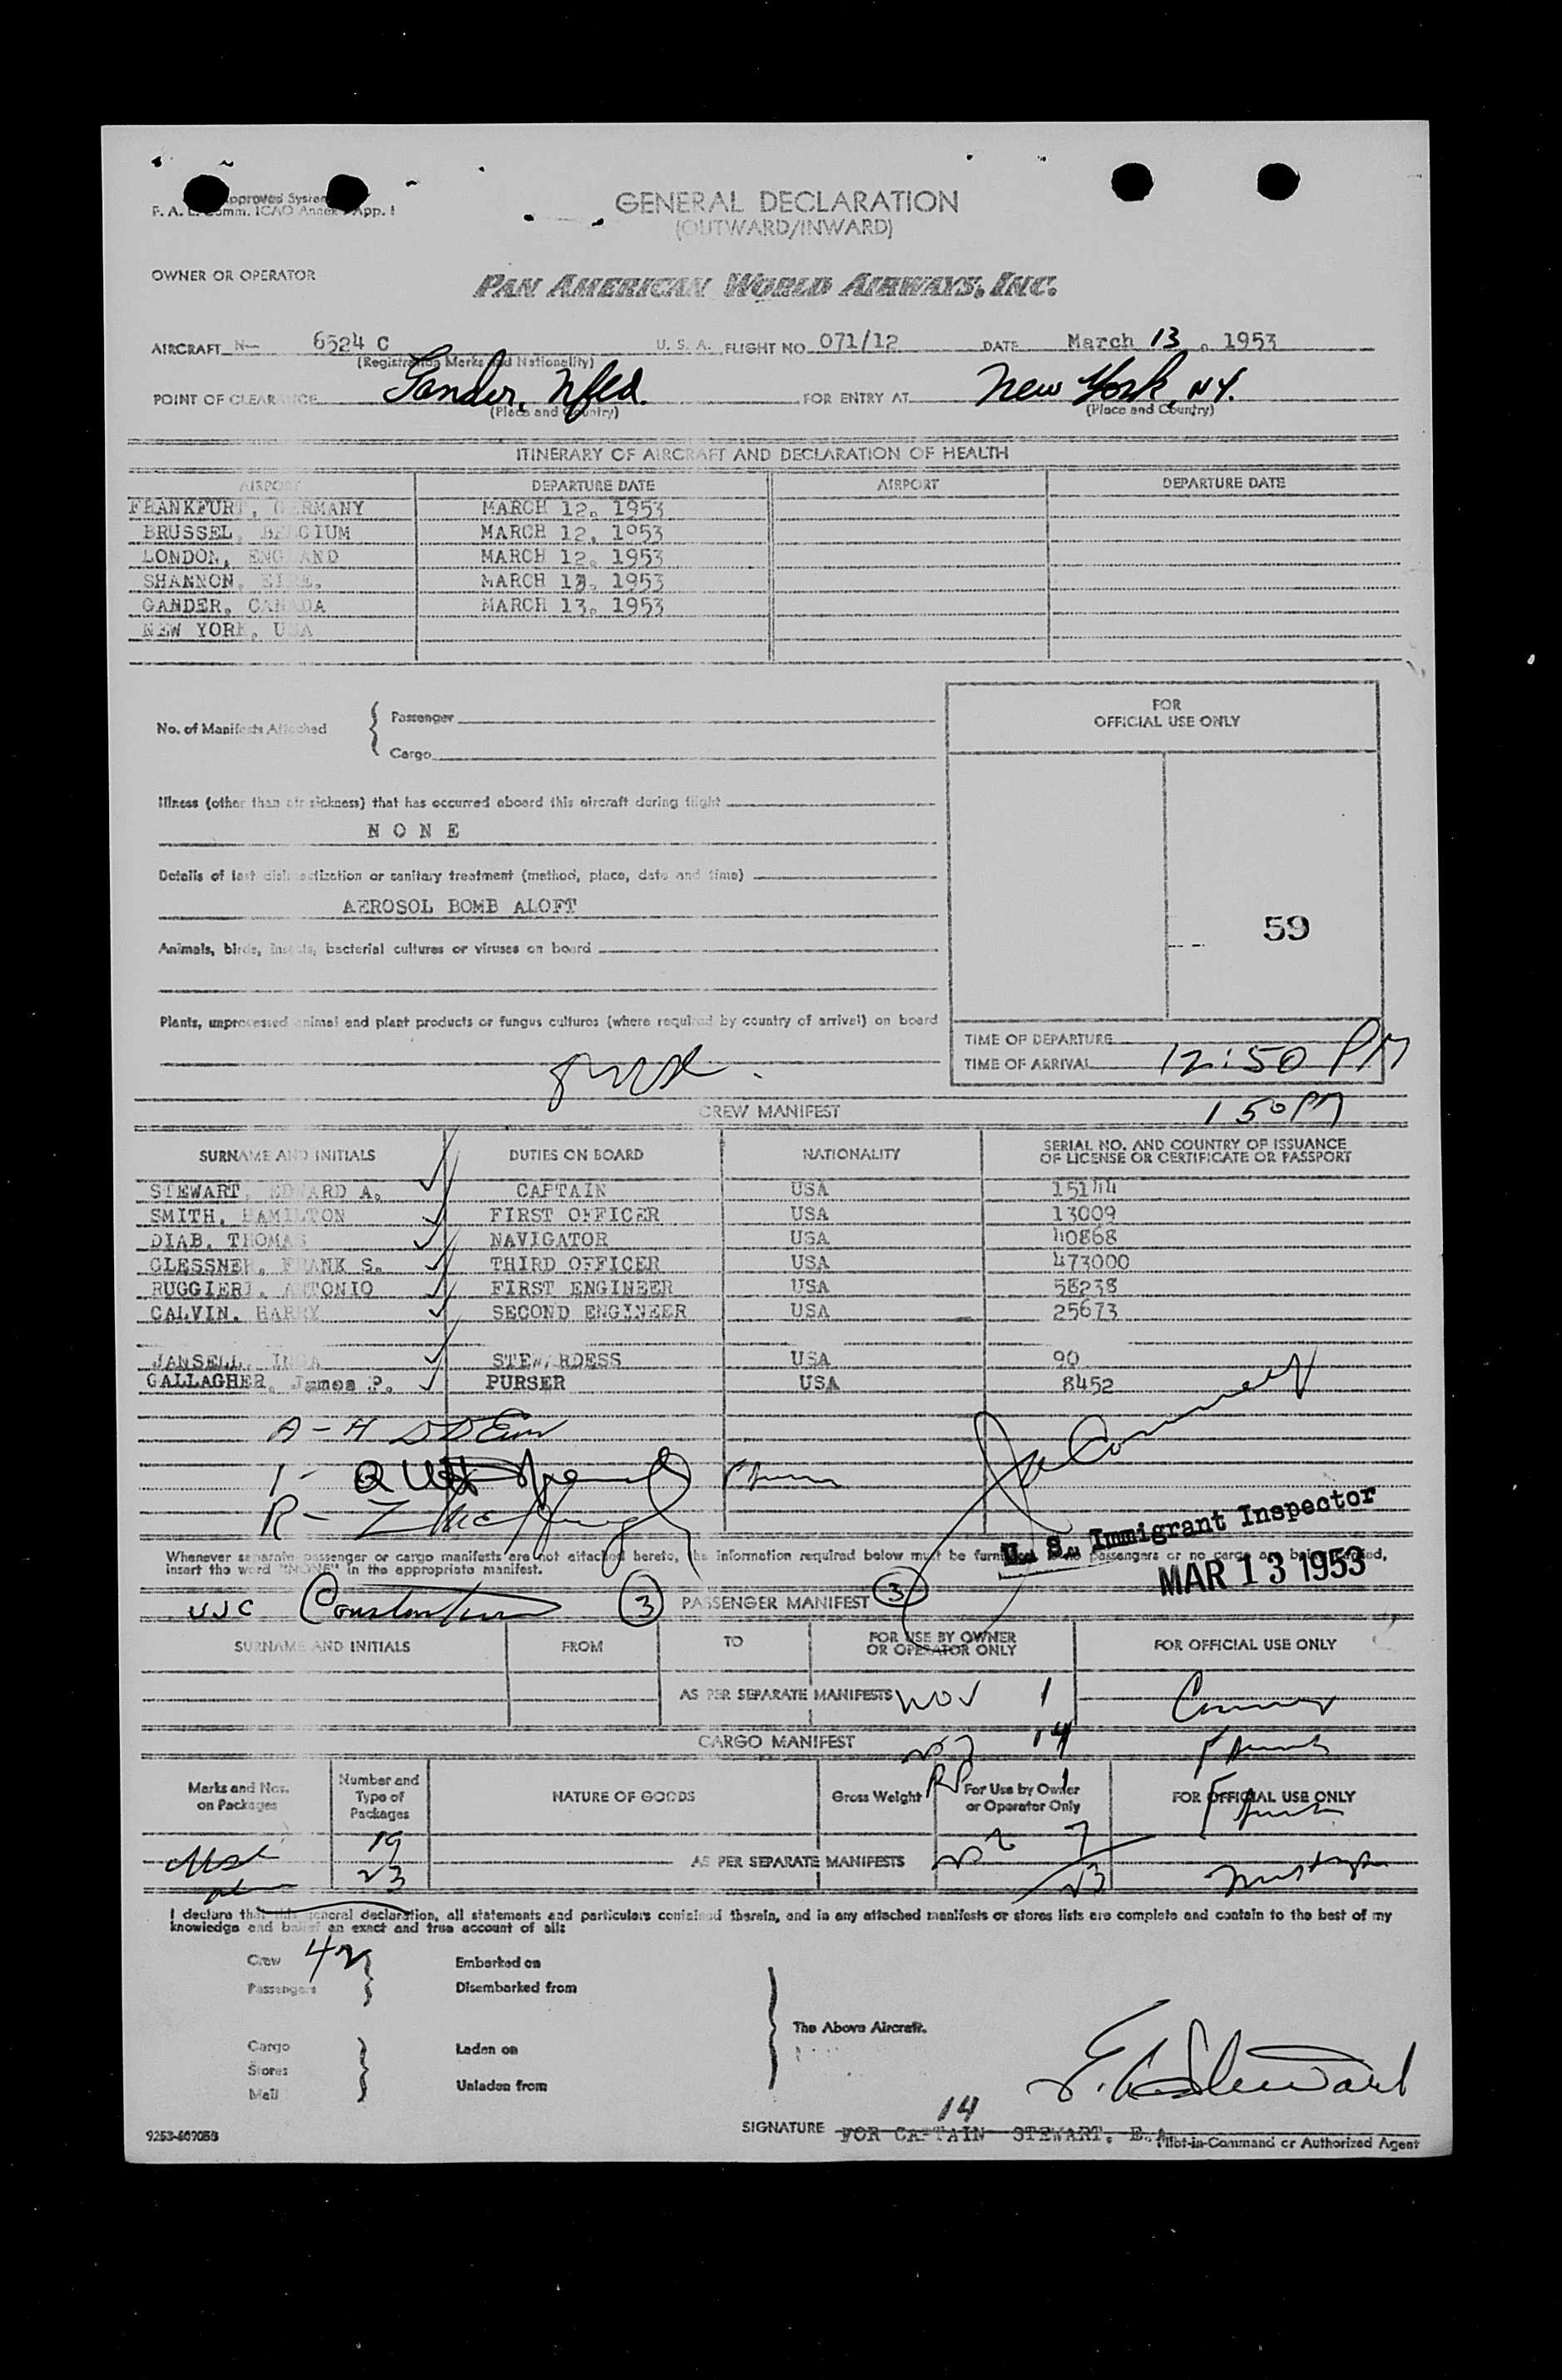 Approved System
F. A. L. Comm. ICAO Annex App. 1
GENERAL DECLARATION
(OUTWARD/INWARD)
OWNER OR OPERATOR
PAN AMERICAN WORLD AIRWAYS, INC.
AIRCRAFT N— 6524 C U. S. A. FLIGHT NO. 071/12 DATE March 13, 1953
(Registration Marks and Nationality)
POINT OF CLEARANCE Gander, Nfld. FOR ENTRY AT New York, NY.
(Place and Country) (Place and Country)
ITINERARY OF AIRCRAFT AND DECLARATION OF HEALTH
AIRPORT DEPARTURE DATE AIRPORT DEPARTURE DATE
FRANKFURT, GERMANY MARCH 12, 1953
BRUSSEL, BELGIUM MARCH 12, 1953
LONDON, ENGLAND MARCH 12, 1953
SHANNON, EIRE. MARCH 13, 1953
GANDER, CANADA MARCH 13, 1953
NEW YORK, USA
FOR
OFFICIAL USE ONLY
No. of Manifests Attached { Passenger
Cargo
Illness (other than air sickness) that has occurred aboard this aircraft during flight
N O N E
Details of last disinsectization or sanitary treatment (method, place, date and time)
AEROSOL BOMB ALOFT
59
Animals, birds, insects, bacterial cultures or viruses on board
Plants, unprocessed animal and plant products or fungus cultures (where required by country of arrival) on board
TIME OF DEPARTURE
TIME OF ARRIVAL 12:50 PM
1 50 PM
CREW MANIFEST
SURNAME AND INITIALS DUTIES ON BOARD NATIONALITY SERIAL NO. AND COUNTRY OF ISSUANCE
OF LICENSE OR CERTIFICATE OR PASSPORT
STEWART, EDWARD A. CAPTAIN USA 15144
SMITH, HAMILTON FIRST OFFICER USA 13009
DIAB, THOMAS NAVIGATOR USA 40868
CLESSNER, FRANK S. THIRD OFFICER USA 473000
RUGGIERI, ANTONIO FIRST ENGINEER USA 58238
CALVIN, HARRY SECOND ENGINEER USA 25673
JANSELL, INGA STEWARDESS USA 90
GALLAGHER, James P. PURSER USA 8452
A -
I -
R -
U. S. Immigrant Inspector
Whenever separate passenger or cargo manifests are not attached hereto, the information required below must be furnished. If no passengers or no cargo are being carried,
insert the word "NONE" in the appropriate manifest.
MAR 13 1953
3 PASSENGER MANIFEST 3
SURNAME AND INITIALS FROM TO FOR USE BY OWNER
OR OPERATOR ONLY FOR OFFICIAL USE ONLY
AS PER SEPARATE MANIFESTS 1
CARGO MANIFEST 14
Marks and Nos.
on Packages Number and
Type of
Packages NATURE OF GOODS Gross Weight For Use by Owner
or Operator Only FOR OFFICIAL USE ONLY
19 7
23 AS PER SEPARATE MANIFESTS 23
I declare that this general declaration, all statements and particulars contained therein, and in any attached manifests or stores lists are complete and contain to the best of my
knowledge and belief an exact and true account of all:
Crew Embarked on
Passengers Disembarked from
The Above Aircraft.
Cargo Laden on
Stores
Mail Unladen from
E. A. Stewart
14
SIGNATURE FOR CAPTAIN STEWART, E.A.
Pilot-in-Command or Authorized Agent